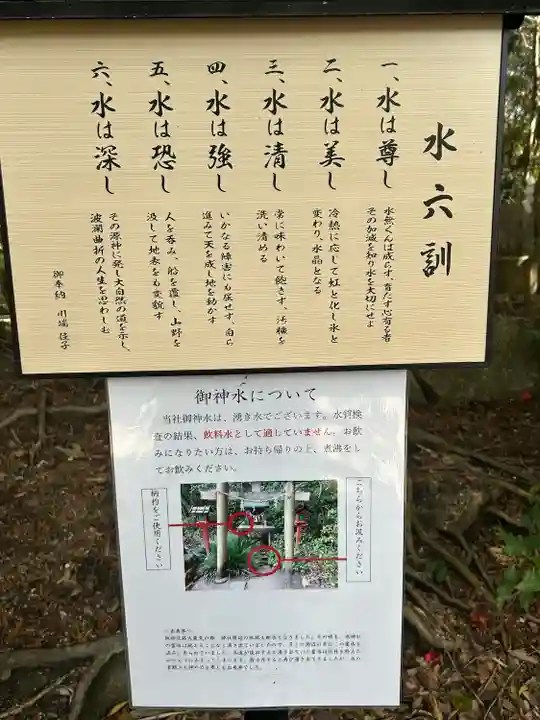 水六訓
一、水は尊し
水無くんば成らず、育たず心有る者
その加減を知り水を大切にせよ
二、水は美し
冷熱に応じて虹と化し氷と
変わり、水晶となる
三、水は清し
常に味わいて飽きず、汚穢を
洗い清める
四、水は強し
いかなる障害にも屈せず、自ら
進みて天を成し地を動かす
五、水は恐し
人を呑み、船を覆し、山野を
没して地表をも変貌す
六、水は深し
その源神に発し大自然の道を示し、
波瀾曲折の人生を思わしむ
御奉納 川端 佳子
御神水について
当社御神水は、湧き水でございます。水質検
査の結果、飲料水として適していません。お飲
みになりたい方は、お持ち帰りの上、煮沸をし
てお飲みください。
柄杓をご使用ください
こちらからお汲みください